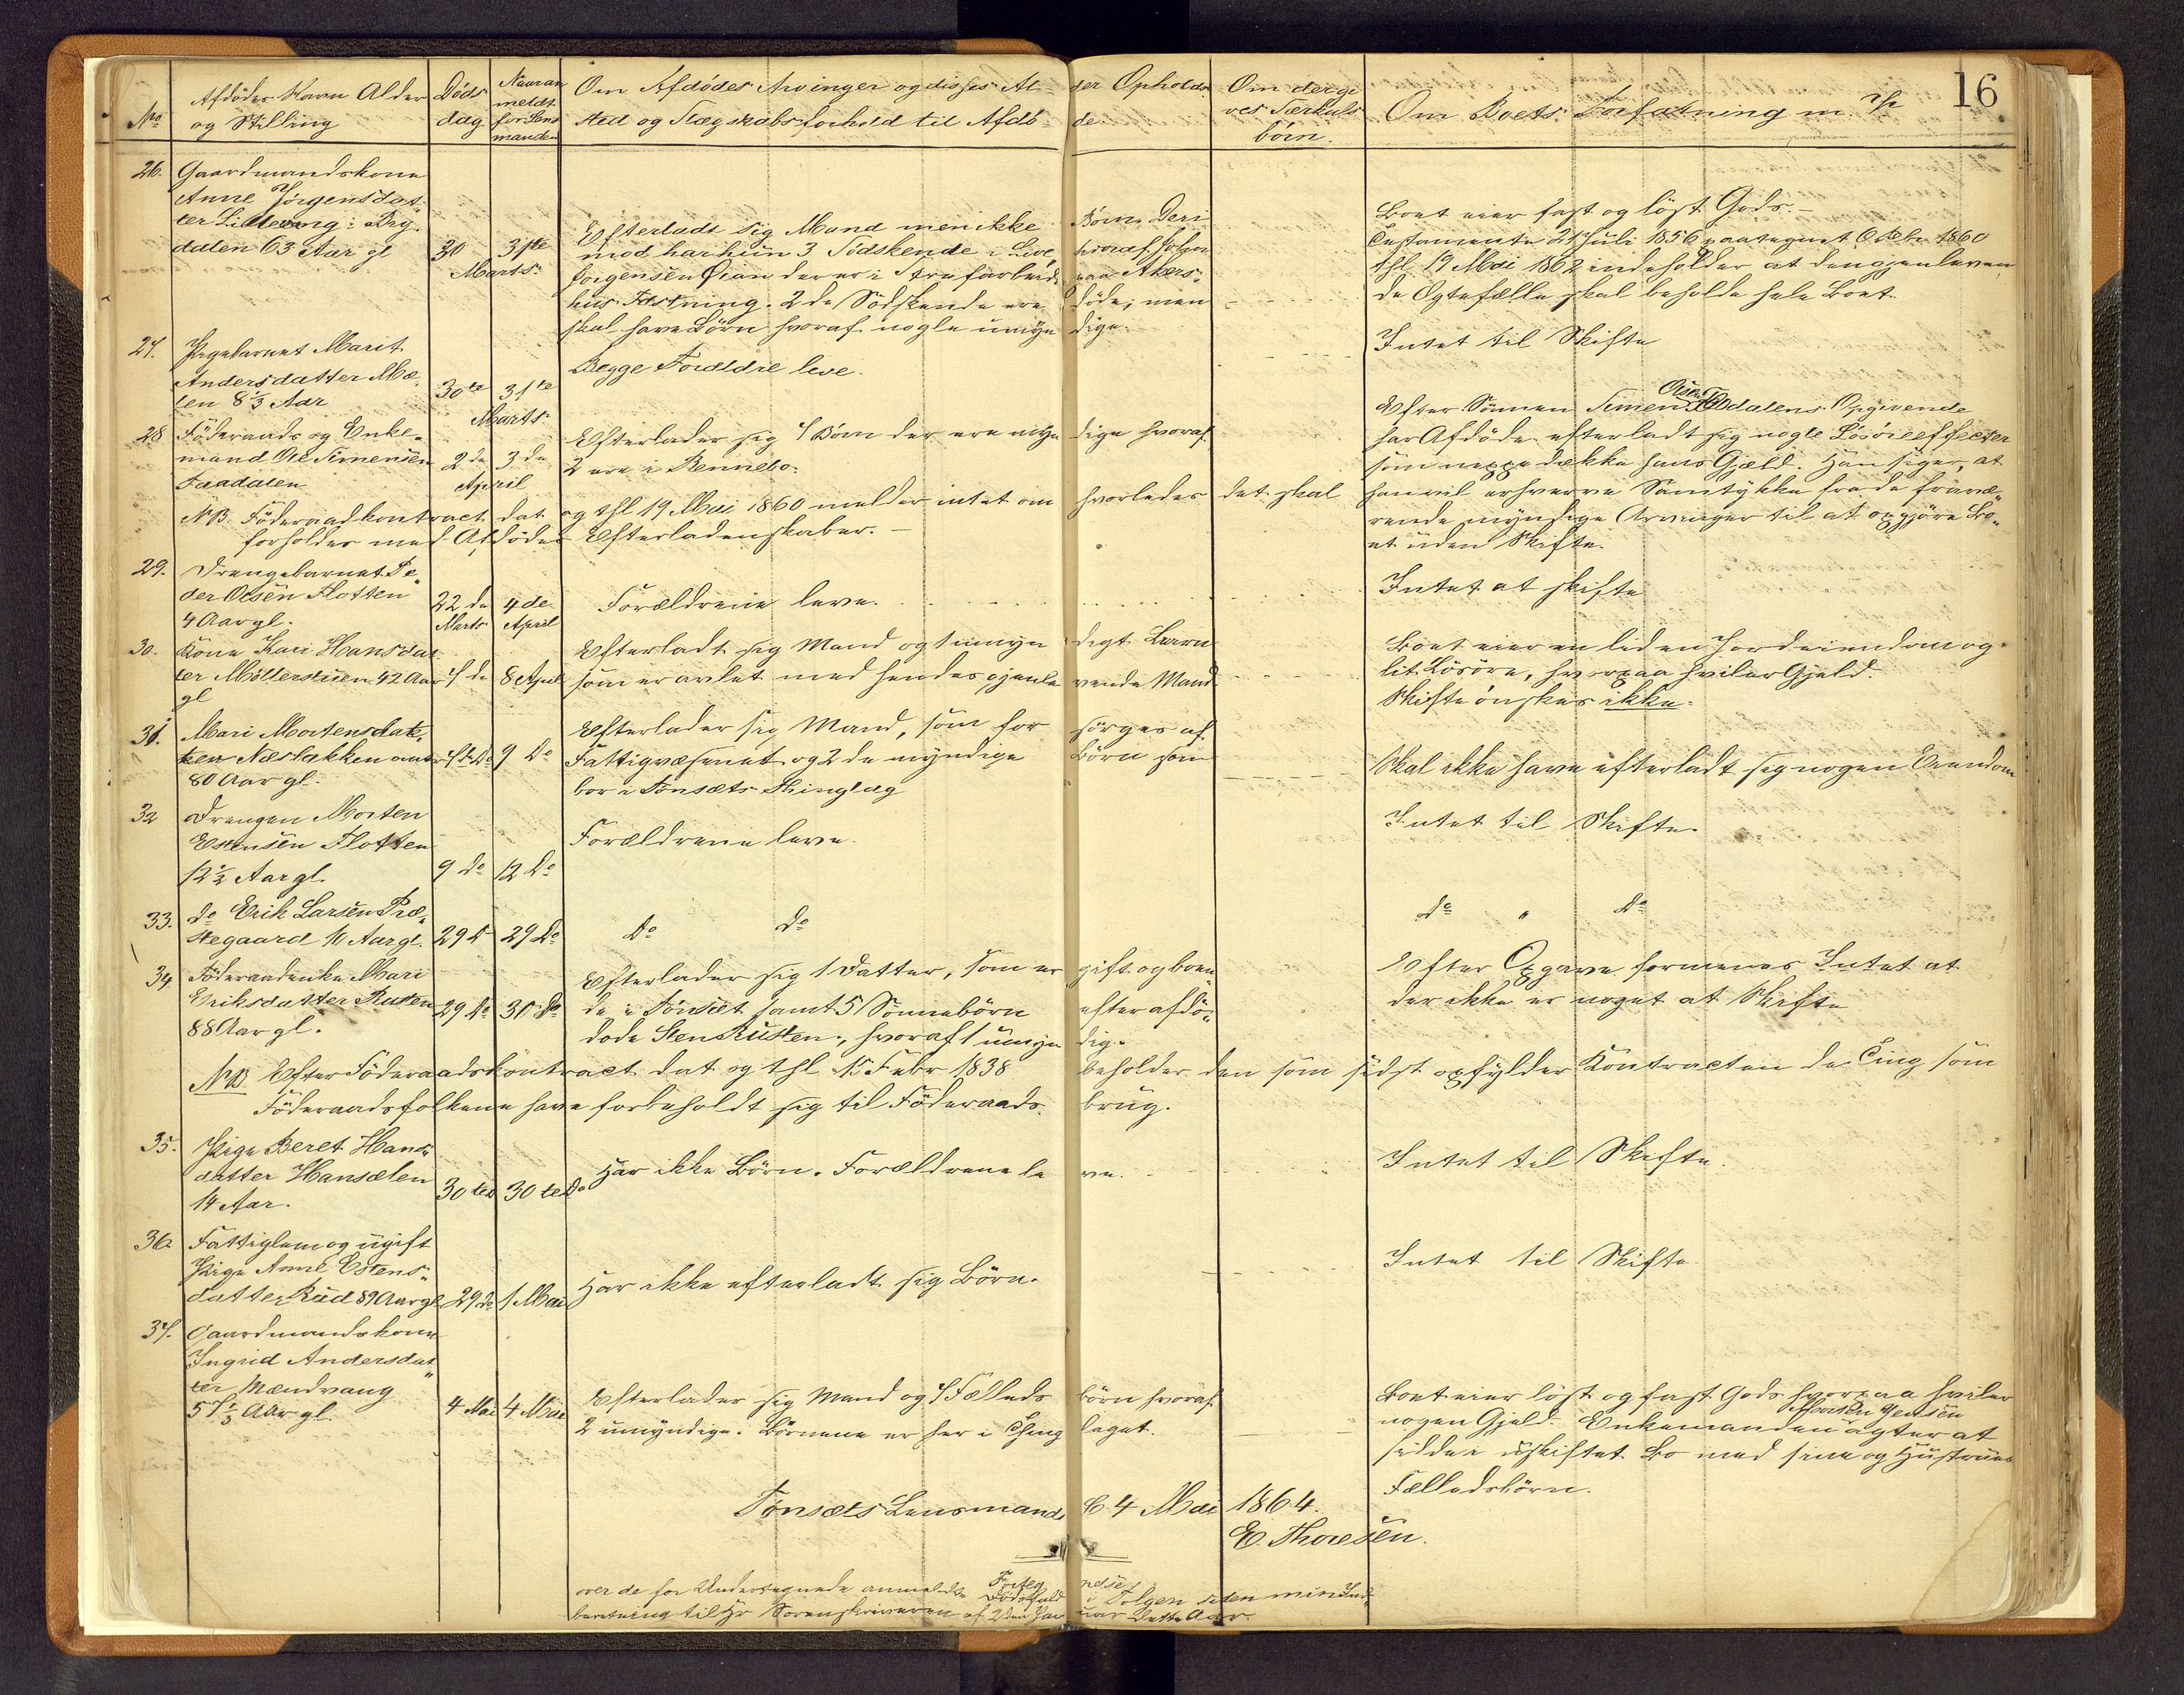 16
No
Afdödes Navn Alder og Stilling
Döds dag
Naar an meldt for Lens manden
Om Afdödes Arvinger og disses Al- der Opholds
sted og Slægskabsforhold til Afdö- de
Om der gi ves Særkuls börn.
Om Boets Forfatning m. V.
26. Gaardmandskone
Anne Jörgensdat
ter Lillevang i Byg.
dalen 63 Aar gl 30 31te
Marts
Efterladt sig Mand men ikke Börn. Deri
mod har hun 3 Södskende i Live, hvoraf Johan
Jörgensen Öian der er i Strafarbeids paa Akers-
hus Fæstning. 2 de Södskende ere döde, men
skal have Börn hvoraf nogle umyn dige.
Boet eier fast og löst Gods. -
Testamente 21 Juli 1856 paategnet 6 Febr 1860
thl 19 Mai 1862 indeholder at den gjenleven
de Ægtefælle skal beholde hele Boet.
27. Pigebarnet Marit
Andersdatter Mæ-
len 8 1/3 Aar 30te 31te
Marts
Begge Forældre leve.
Intet til Skifte
28 Föderaads og Enke-
mand Ole Simensen 2 de 3 de
Faadalen April
Efterlader sig 4 Börn der ere myn dige hvoraf
2 ere i Rennebo.
Efter Sönnen Simen Olsen Faadalens Opgivende
har Afdöde efterladt sig nogle Lösöreeffecter
som neppe dække hans Gjæld. Han siger, at
han vil erhverve Samtykke fra de fravæ-
rende myndige Arvinger til at opgjöre Bo-
et uden Skifte.
NB. Föderaadkontract dat og thl 19 Mai 1860 melder intet om hvorledes det skal
forholdes med Afdödes Efterladenskaber. -
29. Drengebarnet Pe-
der Olsen Flotten 22 de 4 de
4 Aar gl. Marts April
Forældrene leve.
Intet at skifte
30. Kone Kari Hansdat
ter Möllerstuen 42 Aar 4 de 8 April
gl
Efterladt sig Mand og 1 umyn digt Barn
som er avlet med hendes gjenle vende Mand
Boet eier en liden Jordeiendom og
lit Lösöre, hvorpaa hviler Gjæld.
Skifte önskes ikke.
31. Mari Mortensdat-
ter Næsbakken 9 Do
80 Aar gl.
Efterlader sig Mand, som for sörges af
Fattigvæsenet og 2 de myndige Börn som
bor i Tönsæts Thinglag
Skal ikke have efterladt sig nogen Eiendom
32 Drengen Morten
Estensen Flotten
12 1/2 Aar gl. 9 Do 12 Do
Forældrene leve.
Intet til Skifte.
33. Do Erik Larsen Præ-
stegaard 10 Aar gl. 29 D 29 Do
Do Do
Do " Do
34 Föderaadenke Mari
Eriksdatter Rusten 29 Do 30 Do
88 Aar gl.
Efterlader sig 1 Datter, som er gift og boen
de i Tönset samt 5 Sönnebörn efter afdö-
dode Sten Rusten, hvoraf 1 umyn dig.
Efter Opgave formenes Intet at
der ikke er noget at Skifte
NB Efter Föderaadskontract dat og thl 15 Febr 1838 beholder den som sidst opfylder Kontracten de Ting som
Föderaadsfolkene have forbeholdt sig til Föderaads brug.
35. Pige Beret Hans
datter Hansælen
14 Aar. 30 te D 30 te Do
Har ikke Börn. Forældrene le ve.
Intet til Skifte.
36. Fattiglem og ugift
Pige Anne Estens-
datter Rud 89 Aar gl 29 Do 1 Mai
Har ikke efterladt sig Börn.
Intet til Skifte
37. Gaardmandskone
Ingrid Andersdat
ter Mændvang
57 1/3 Aar gl. 4 Mai 4 Mai
Efterlader sig Mand og 4 Fælleds börn hvoraf
2 umyndige. Börnene er her i Thing laget.
Boet eier löst og fast Gods hvorpaa hviler
nogen Gjæld. Enkemanden Morten Jensen agter at
sidde i uskiftet Bo med sine og Hustrues
Fælledsbörn.
Tönsæts Lensmands C 4 Mai 1864.
E. Thoresen.
Forteg nelse
over de for Undertegnede anmeldte Dödsfald i Tolgen siden min Ind-
beretning til Hr Sorenskriveren af 2den Jan uar dette Aar.